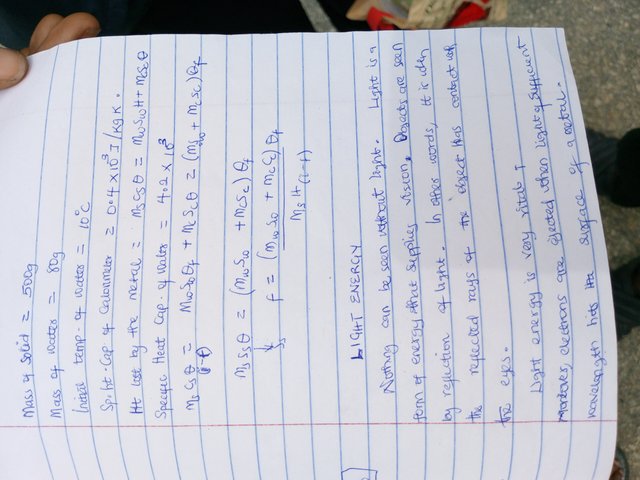 Mass of solid = 500g
Mass of water = 80g
Initial temp. of water = 10°C
Sp. ht. cap. of Calorimeter = 0.4 x 10³ J/kg K.
Ht lost by the metal = MsCsθ = MwSwH + McScθ
Specific Heat Cap. of Water = 4.2 x 10³
Ms Csθ = MwSwθf + McScθ = (MsSw + McSc)θf
MsSsθ = (MwSw + McSc)θf
f = (MwSw + McSc)θf
MsH (i-f)
LIGHT ENERGY
Nothing can be seen without light. Light is a
form of energy that supplies vision. Objects are seen
by reflection of light. In other words, it is when
the reflected rays of the object has contact with
the eyes.
Light energy is very vital
Moreover, electrons are ejected when light of sufficient
wavelength hits the surface of a metal.